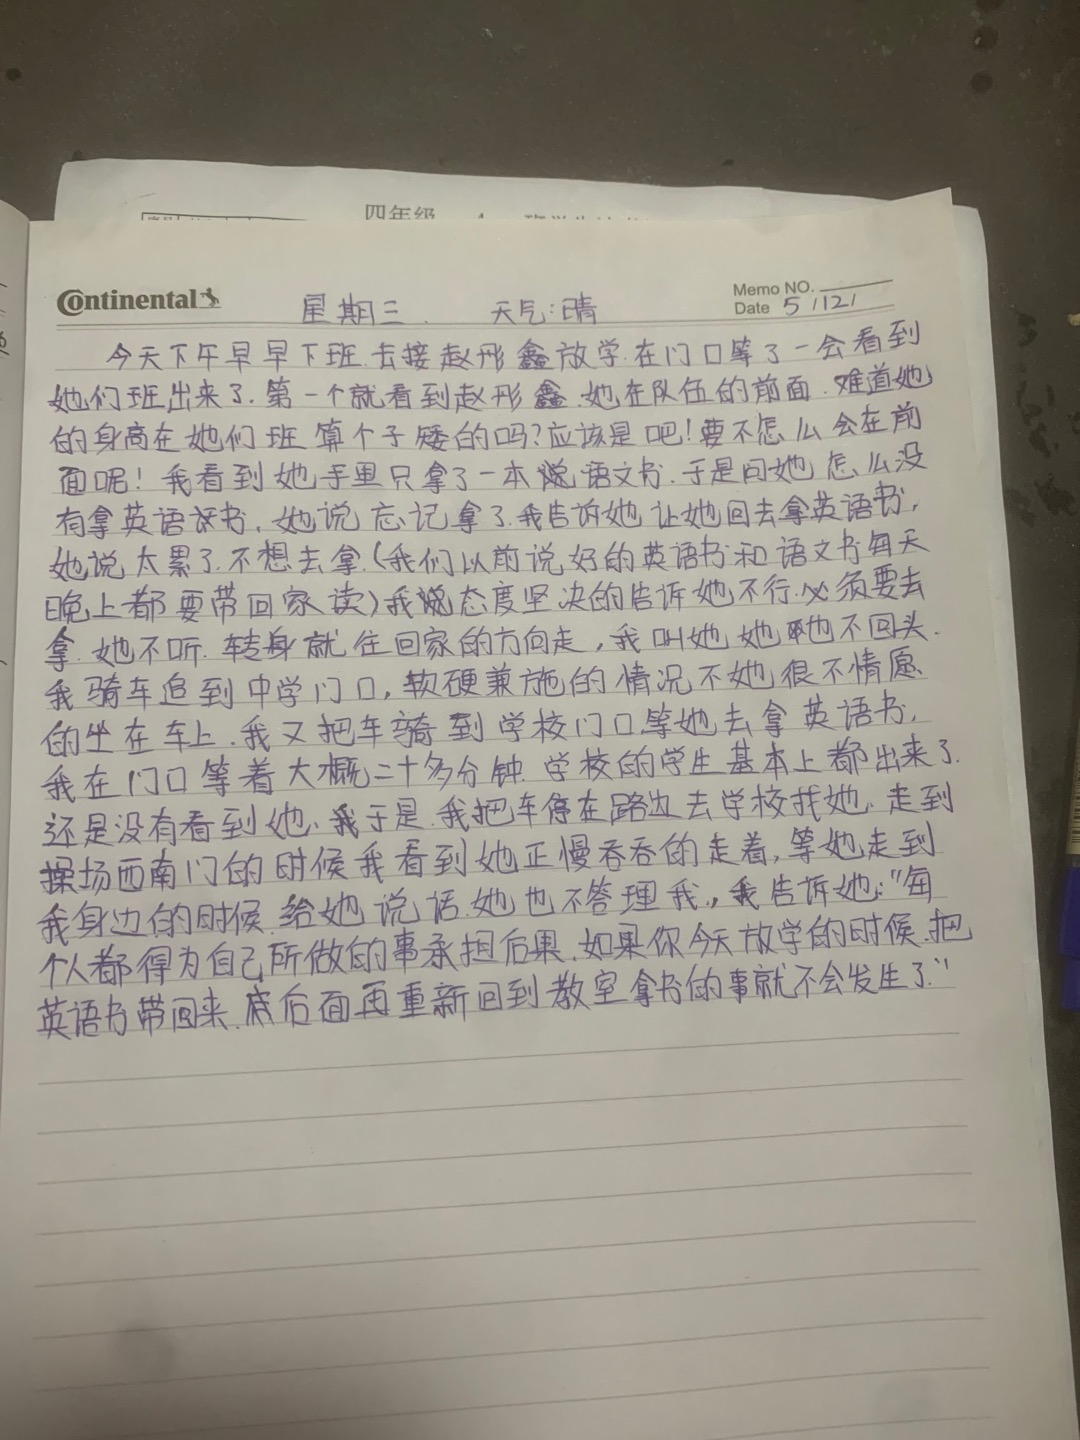 四年级
Continental
Memo NO.
Date 5/12/
星期三. 天气:晴
今天下午早早下班.去接赵彤鑫放学.在门口等了一会看到
她们班出来了.第一个就看到赵彤鑫.她在队伍的前面.难道她
的身高在她们班算个子矮的吗?应该是吧!要不怎么会在前
面呢!我看到她手里只拿了一本语文书.于是问她怎么没
有拿英语书,她说忘记拿了.我告诉她让她回去拿英语书,
她说太累了.不想去拿.(我们以前说好的英语书和语文书每天
晚上都要带回家读)我态度坚决的告诉她不行.必须要去
拿.她不听.转身就往回家的方向走,我叫她她也不回头.
我骑车追到中学门口,软硬兼施的情况下她很不情愿
的坐在车上.我又把车骑到学校门口等她去拿英语书,
我在门口等着大概二十多分钟.学校的学生基本上都出来了.
还是没有看到她.于是.我把车停在路边去学校找她.走到
操场西南门的时候我看到她正慢吞吞的走着,等她走到
我身边的时候.给她说话.她也不答理我.,我告诉她:"每
个人都得为自己所做的事承担后果.如果你今天放学的时候.把
英语书带回来.后面再重新回到教室拿书的事就不会发生了."